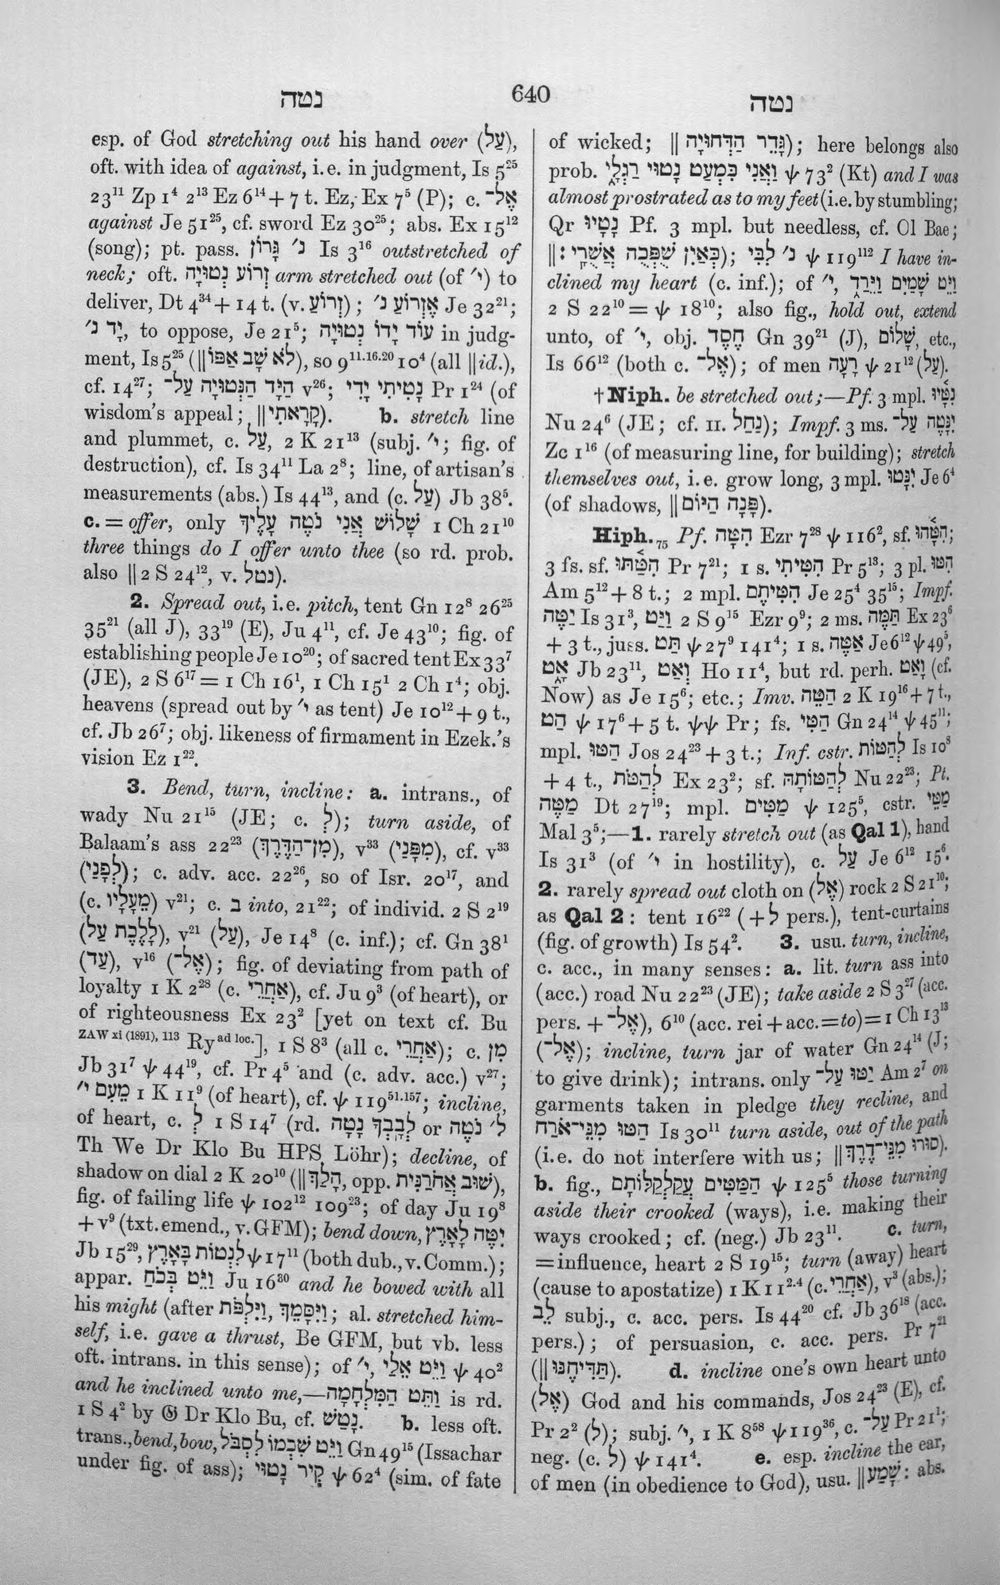 נטה
640
נטה
esp. of God stretching out his hand over (עַל),
oft. with idea of against, i.e. in judgment, Is 5²⁵
23¹¹ Zp 1⁴ 2¹³ Ez 6¹⁴ + 7 t. Ez, Ex 7⁵ (P); c. אֶל־
against Je 51²⁵, cf. sword Ez 30²⁵; abs. Ex 15¹²
(song); pt. pass. נ׳ גָּרוֹן Is 3¹⁶ outstretched of
neck; oft. זְרוֹעַ נְטוּיָה arm stretched out (of ׳י) to
deliver, Dt 4³⁴ + 14 t. (v. זְרוֹעַ); אֶזְרוֹעַ נ׳ Je 32²¹;
יָד נ׳, to oppose, Je 21⁵; עוֹד יָדוֹ נְטוּיָה in judg-
ment, Is 5²⁵ (‖ לֹא שָׁב אַפּוֹ), so 9¹¹·¹⁶·²⁰ 10⁴ (all ‖ id.),
cf. 14²⁷; הַיָּד הַנְּטוּיָה עַל־ v²⁶; נָטִיתִי יָדִי Pr 1²⁴ (of
wisdom's appeal; ‖ קָרָאתִי). b. stretch line
and plummet, c. עַל, 2 K 21¹³ (subj. ׳י; fig. of
destruction), cf. Is 34¹¹ La 2⁸; line, of artisan's
measurements (abs.) Is 44¹³, and (c. עַל) Jb 38⁵.
c. = offer, only שָׁלוֹשׁ אֲנִי נֹטֶה עָלֶיךָ 1 Ch 21¹⁰
three things do I offer unto thee (so rd. prob.
also ‖ 2 S 24¹², v. נטל).
2. Spread out, i.e. pitch, tent Gn 12⁸ 26²⁵
35²¹ (all J), 33¹⁹ (E), Ju 4¹¹, cf. Je 43¹⁰; fig. of
establishing people Je 10²⁰; of sacred tent Ex 33⁷
(JE), 2 S 6¹⁷ = 1 Ch 16¹, 1 Ch 15¹ 2 Ch 1⁴; obj.
heavens (spread out by ׳י as tent) Je 10¹² + 9 t.,
cf. Jb 26⁷; obj. likeness of firmament in Ezek.'s
vision Ez 1²².
3. Bend, turn, incline: a. intrans., of
wady Nu 21¹⁵ (JE; c. לְ); turn aside, of
Balaam's ass 22²³ (מִן־הַדֶּרֶךְ), v³³ (מִפָּנַי), cf. v³³
(לְפָנַי); c. adv. acc. 22²⁶, so of Isr. 20¹⁷, and
(c. מֵעָלָיו) v²¹; c. בְּ into, 21²²; of individ. 2 S 2¹⁹
(לָלֶכֶת עַל), v²¹ (עַל), Je 14⁸ (c. inf.); cf. Gn 38¹
(עַד), v¹⁶ (אֶל־); fig. of deviating from path of
loyalty 1 K 2²⁸ (c. אַחֲרֵי), cf. Ju 9³ (of heart), or
of righteousness Ex 23² [yet on text cf. Bu
ZAW xi (1891), 113 Ry ad loc.], 1 S 8³ (all c. אַחֲרֵי); c. מִן
Jb 31⁷ ψ 44¹⁹, cf. Pr 4⁵ and (c. adv. acc.) v²⁷;
מֵעִם י׳ 1 K 11⁹ (of heart), cf. ψ 119⁵¹·¹⁵⁷; incline,
of heart, c. לְ 1 S 14⁷ (rd. לְבָבְךָ נָטָה or ל׳ נֹטֶה
Th We Dr Klo Bu HPS Löhr); decline, of
shadow on dial 2 K 20¹⁰ (‖ הָלַךְ, opp. שׁוּב אֲחֹרַנִּית),
fig. of failing life ψ 102¹² 109²³; of day Ju 19⁸
+ v⁹ (txt. emend., v. GFM); bend down, יִטֶּה לָאָרֶץ
Jb 15²⁹, לִנְטוֹת בָּאָרֶץ ψ 17¹¹ (both dub., v. Comm.);
appar. וַיֵּט בְּכֹחַ Ju 16³⁰ and he bowed with all
his might (after וַיִּסָּמֵךְ, וַיִּלְפֹּת; al. stretched him-
self, i.e. gave a thrust, Be GFM, but vb. less
oft. intrans. in this sense); of ׳י, וַיֵּט אֵלַי ψ 40²
and he inclined unto me,—וַתֵּט הַמִּלְחָמָה is rd.
1 S 4² by 𝔊 Dr Klo Bu, cf. נָטַשׁ. b. less oft.
trans., bend, bow, וַיֵּט שִׁכְמוֹ לִסְבֹּל Gn 49¹⁵ (Issachar
under fig. of ass); קִיר נָטוּי ψ 62⁴ (sim. of fate
of wicked; ‖ גָּדֵר הַדְּחוּיָה); here belongs also
prob. וַאֲנִי כִּמְעַט נָטוּי רַגְלָי ψ 73² (Kt) and I was
almost prostrated as to my feet (i.e. by stumbling;
Qr נָטָיוּ Pf. 3 mpl. but needless, cf. Ol Bae;
‖ כְּאַיִן שֻׁפְּכָה אֲשֻׁרָי׃); נ׳ לִבִּי ψ 119¹¹² I have in-
clined my heart (c. inf.); of ׳י, וַיֵּט שָׁמַיִם וַיֵּרַד
2 S 22¹⁰ = ψ 18¹⁰; also fig., hold out, extend
unto, of ׳י, obj. חֶסֶד Gn 39²¹ (J), שָׁלוֹם, etc.,
Is 66¹² (both c. אֶל־); of men רָעָה ψ 21¹² (עַל).
†Niph. be stretched out;—Pf. 3 mpl. נִטָּיוּ
Nu 24⁶ (JE; cf. II. נַחַל); Impf. 3 ms. יִנָּטֶה עַל־
Zc 1¹⁶ (of measuring line, for building); stretch
themselves out, i.e. grow long, 3 mpl. יִנָּטוּ Je 6⁴
(of shadows, ‖ פָּנָה הַיּוֹם).
Hiph.₇₅ Pf. הִטָּה Ezr 7²⁸ ψ 116², sf. הִטָּהוּ;
3 fs. sf. הִטַּתּוּ Pr 7²¹; 1 s. הִטִּיתִי Pr 5¹³; 3 pl. הִטּוּ
Am 5¹² + 8 t.; 2 mpl. הִטִּיתֶם Je 25⁴ 35¹⁵; Impf.
יַטֶּה Is 31³, וַיֵּט 2 S 9¹⁵ Ezr 9⁹; 2 ms. תַּטֶּה Ex 23⁶
+ 3 t., juss. תַּט ψ 27⁹ 141⁴; 1 s. אַטֶּה Je 6¹² ψ 49⁵,
אָט Jb 23¹¹, וְאַט Ho 11⁴, but rd. perh. וָאֵט (cf.
Now) as Je 15⁶; etc.; Imv. הַטֵּה 2 K 19¹⁶ + 7 t.,
הַט ψ 17⁶ + 5 t. ψψ Pr; fs. הַטִּי Gn 24¹⁴ ψ 45¹¹;
mpl. הַטּוּ Jos 24²³ + 3 t.; Inf. cstr. לְהַטּוֹת Is 10²
+ 4 t., לְהַטֹּת Ex 23²; sf. לְהַטּוֹתָהּ Nu 22²³; Pt.
מַטֶּה Dt 27¹⁹; mpl. מַטִּים ψ 125⁵, cstr. מַטֵּי
Mal 3⁵;—1. rarely stretch out (as Qal 1), hand
Is 31³ (of ׳י in hostility), c. עַל Je 6¹² 15⁶.
2. rarely spread out cloth on (אֶל) rock 2 S 21¹⁰;
as Qal 2: tent 16²² (+ לְ pers.), tent-curtains
(fig. of growth) Is 54². 3. usu. turn, incline,
c. acc., in many senses: a. lit. turn ass into
(acc.) road Nu 22²³ (JE); take aside 2 S 3²⁷ (acc.
pers. + אֶל־), 6¹⁰ (acc. rei + acc. = to) = 1 Ch 13¹³
(אֶל־); incline, turn jar of water Gn 24¹⁴ (J;
to give drink); intrans. only יַטּוּ עַל־ Am 2⁷ on
garments taken in pledge they recline, and
הַטּוּ מִנֵּי־אֹרַח Is 30¹¹ turn aside, out of the path
(i.e. do not interfere with us; ‖ סוּרוּ מִנֵּי־דֶרֶךְ).
b. fig., הַמַּטִּים עֲקַלְקַלּוֹתָם ψ 125⁵ those turning
aside their crooked (ways), i.e. making their
ways crooked; cf. (neg.) Jb 23¹¹. c. turn,
= influence, heart 2 S 19¹⁵; turn (away) heart
(cause to apostatize) 1 K 11²·⁴ (c. אַחֲרֵי), v³ (abs.);
לֵב subj., c. acc. pers. Is 44²⁰ cf. Jb 36¹⁸ (acc.
pers.); of persuasion, c. acc. pers. Pr 7²¹
(‖ תַּדִּיחֶנּוּ). d. incline one's own heart unto
(אֶל) God and his commands, Jos 24²³ (E), cf.
Pr 2² (לְ); subj. ׳י, 1 K 8⁵⁸ ψ 119³⁶, c. עַל־ Pr 21¹;
neg. (c. לְ) ψ 141⁴. e. esp. incline the ear,
of men (in obedience to God), usu. ‖ שָׁמַע: abs.